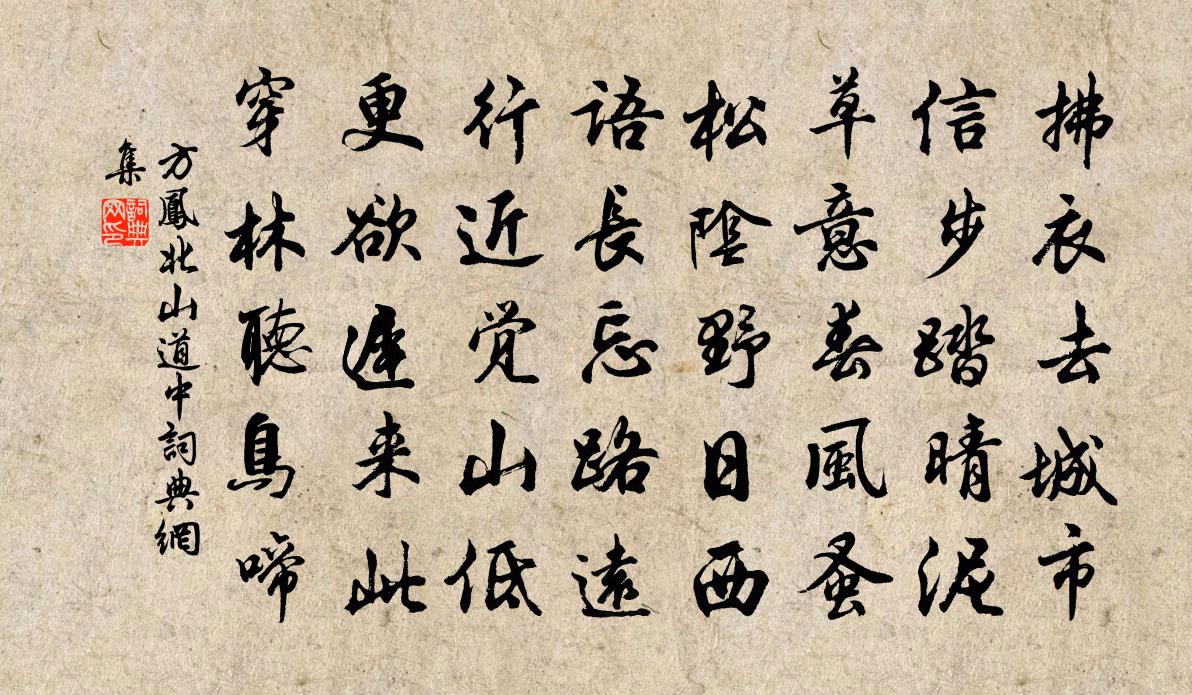 拂衣去城市
信步踏晴泥
草意春風蚤
松陰野日西
語長忘路遠
行近覺山低
更欲遲来此
穿林聽鳥啼
方鳳北山道中詞典網
集
詞典
网印